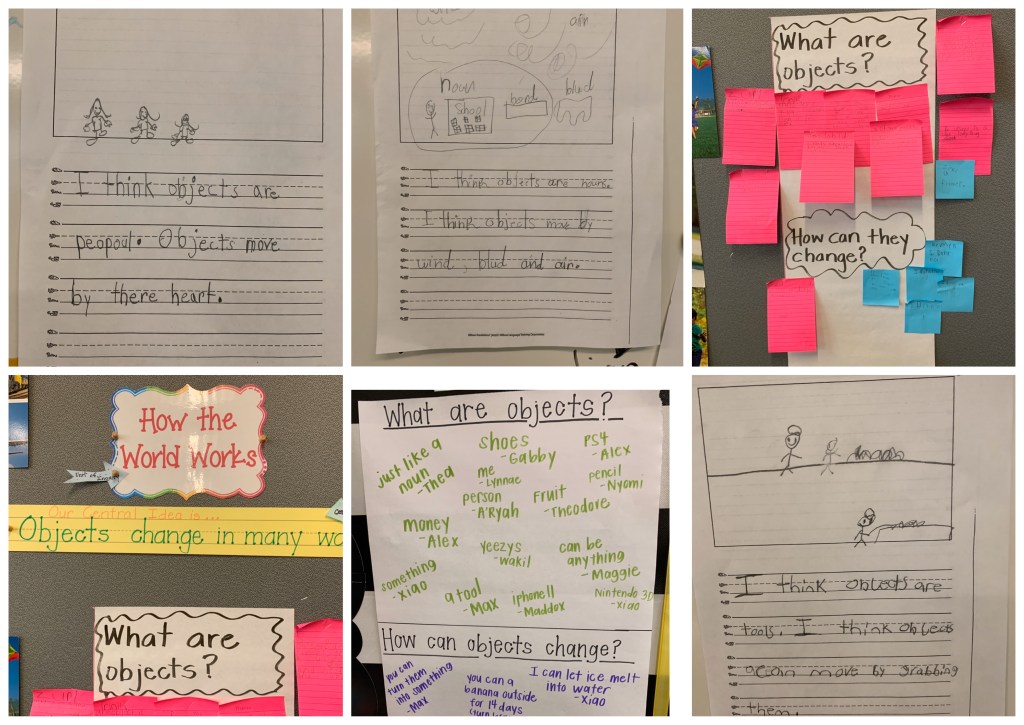 I think objects are
peopoul. Objects move
by there heart.
air
noun
School
blud
I think objects are nouns.
I think objects move by
wind, blud and air.
What are
objects?
How can they
change?
How the
World Works
Our Central Idea is...
Objects change in many wa
What are
objects?
What are objects?
just like a
noun
-Thea
shoes
-Gabby
PS4
-Alex
me
-Lynnae
pencil
-Nyomi
person
-A'Ryah
Fruit
-Theodore
money
-Alex
Yeezys
-Wakil
can be
anything
-Maggie
something
-Xiao
a tool
-Max
iphone 11
-Maddox
Nintendo 3D
-Xiao
How can objects change?
you can
turn them
into something
-Max
you can a
banana outside
for 14 days
I can let ice melt
into water
-Xiao
I think objects are
tools. I think objects
move by grabbing
them.